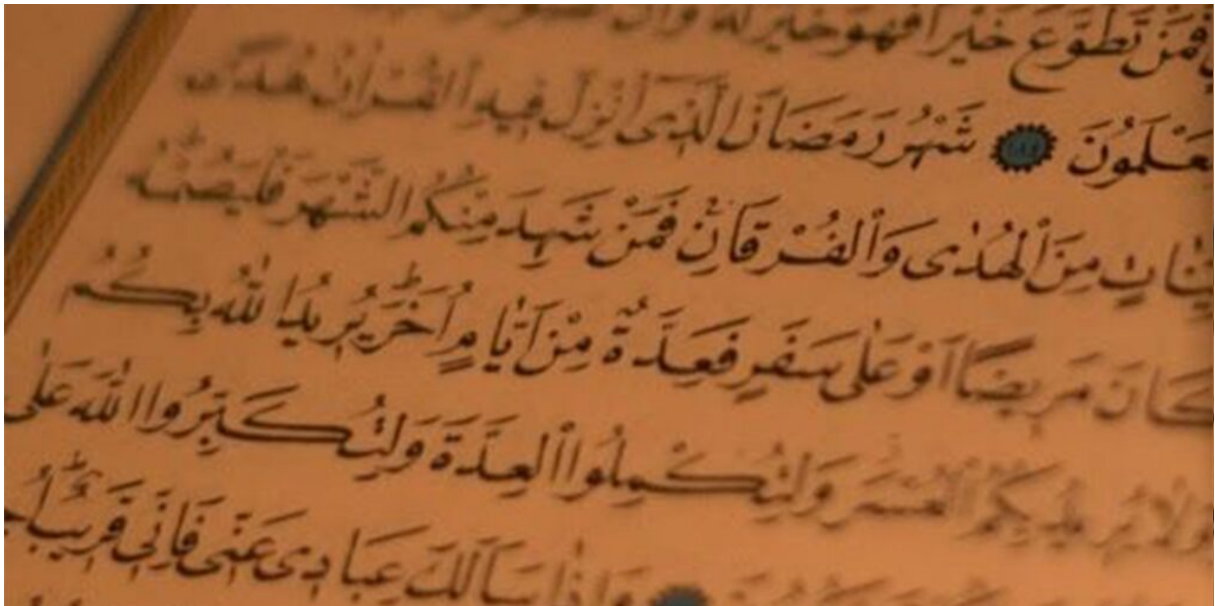 فَمَنْ تَطَوَّعَ خَيْرًا فَهُوَ خَيْرٌ لَهُ وَاَنْ
عْلَمُونَ ١٨٤ شَهْرُ رَمَضَانَ الَّذ۪ى اُنْزِلَ ف۪يهِ الْقُرْاٰنُ هُدًى
يِّنَاتٍ مِنَ الْهُدٰى وَالْفُرْقَانِۚ فَمَنْ شَهِدَ مِنْكُمُ الشَّهْرَ فَلْيَصُمْهُۜ
كَانَ مَر۪يضًا اَوْ عَلٰى سَفَرٍ فَعِدَّةٌ مِنْ اَيَّامٍ اُخَرَۜ يُر۪يدُ اللّٰهُ بِكُمُ
وَلَا يُر۪يدُ بِكُمُ الْعُسْرَ وَلِتُكْمِلُوا الْعِدَّةَ وَلِتُكَبِّرُوا اللّٰهَ عَلٰى
وَاِذَا سَاَلَكَ عِبَاد۪ى عَنّ۪ى فَاِنّ۪ى قَر۪يبٌۜ